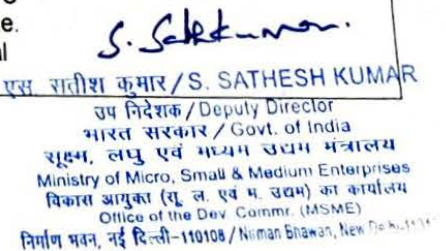 e.
S. Sathkumar.
एस. सतीश कुमार / S. SATHESH KUMAR
उप निदेशक / Deputy Director
भारत सरकार / Govt. of India
सूक्ष्म, लघु एवं मध्यम उद्यम मंत्रालय
Ministry of Micro, Small & Medium Enterprises
विकास आयुक्त (सू. ल. एवं म. उद्यम) का कार्यालय
Office of the Dev. Commr. (MSME)
निर्माण भवन, नई दिल्ली-110108 / Nirman Bhawan, New